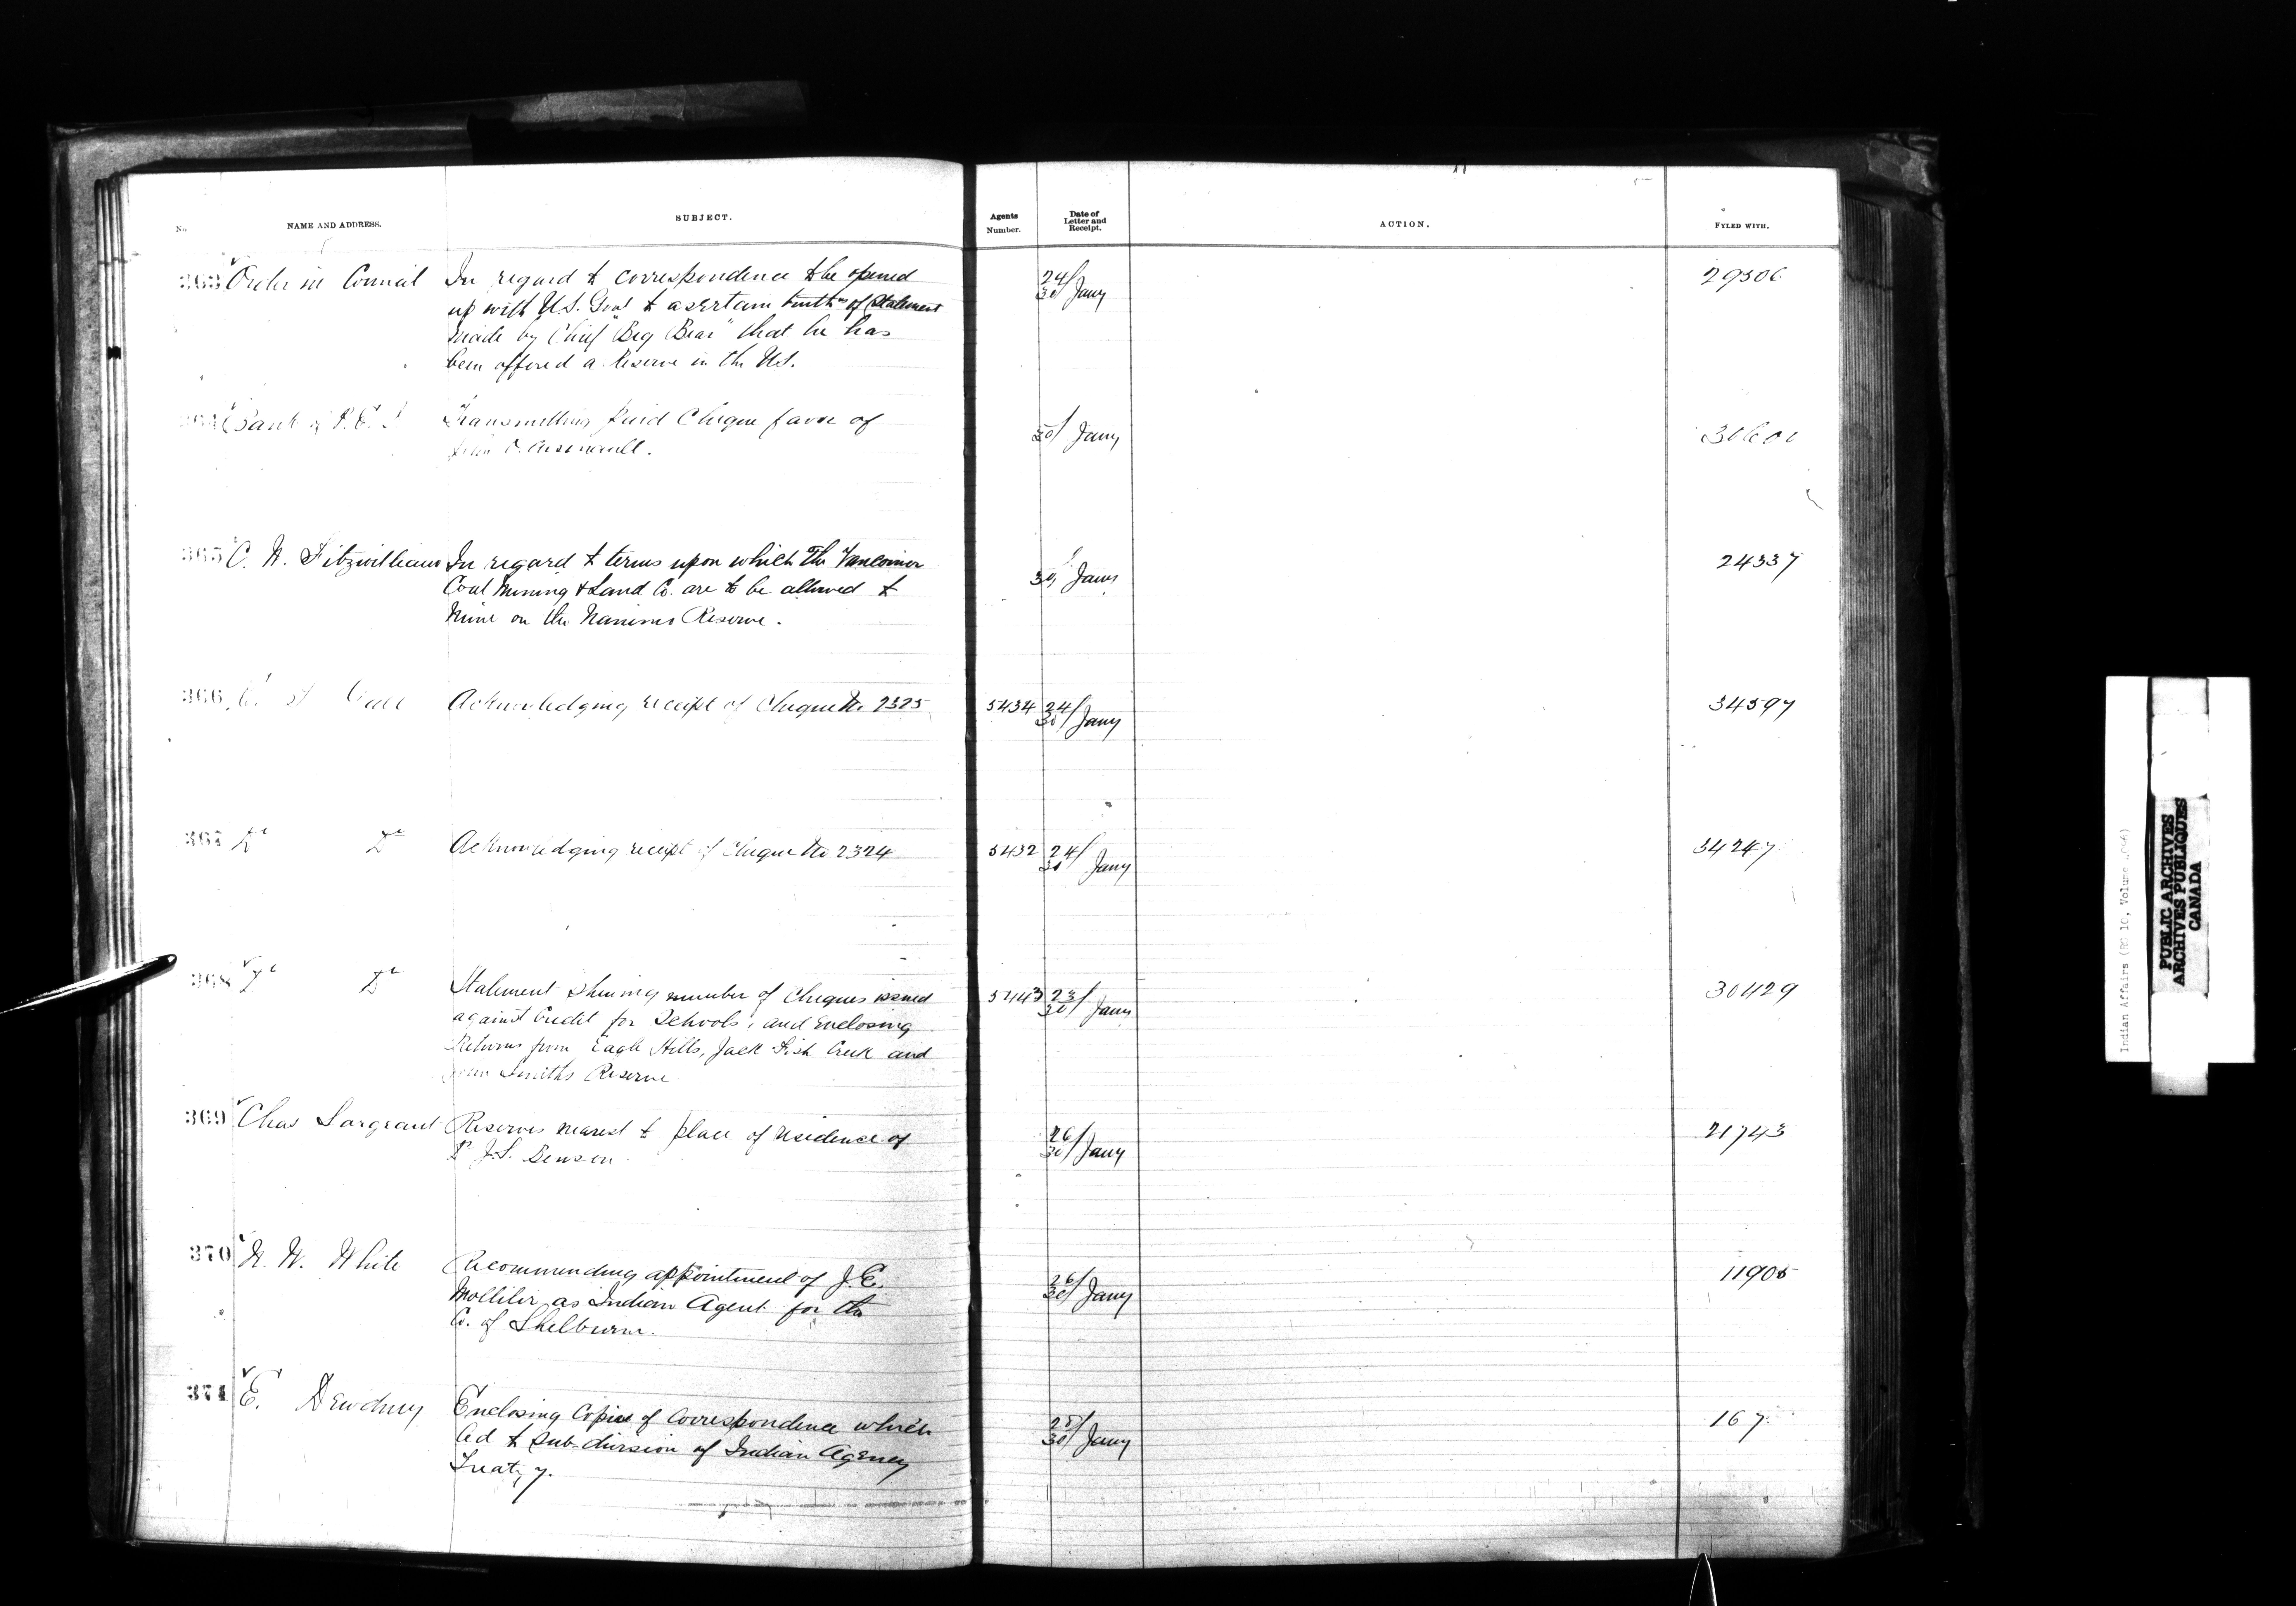 No. NAME AND ADDRESS. SUBJECT. Agents Number. Date of Letter and Receipt. ACTION. FYLED WITH.
363 Order in Council In regard to correspondence to be opened 24/30 Jany 29506
up with U.S. Govt to asertain truth of Statement
made by Chief "Big Bear" that he has
been offered a Reserve in the U.S.
364 Bank of P.E.I Transmitting paid Cheque favor of 30/ Jany
John O. Arsenault.
365 C. W. Fitzwilliam In regard to terms upon which The Vancouver 30/ Jany 24337
Coal Mining & Land Co. are to be allowed to
Mine on the Nanimo Reserve.
366 Acknowledging receipt of Cheque No 2325 5434 24/30 Jany 34597
367 Do Do Acknowledging receipt of Cheque No 2324 5432 24/30 Jany 34247
368 Do Do Statement Shewing number of Cheques issued 5443 23/30 Jany 30429
against Credit for Schools, and Enclosing
Returns from Eagle Hills, Jack Fish Creek and
John Smiths Reserve
369 Chas Sargeant Reserves nearest to place of residence of 26/30 Jany 21743
J.S. Benson
370 N. W. White Recommending appointment of J.E. 26/30 Jany 11905
as Indian Agent for the
Co. of Shelburne.
371 E. Dewdney Enclosing Copies of Correspondence which 25/30 Jany 167
led to Sub-division of Indian Agency
Treaty 7.
Indian Affairs (RG 10, Volume
PUBLIC ARCHIVES
ARCHIVES PUBLIQUES
CANADA